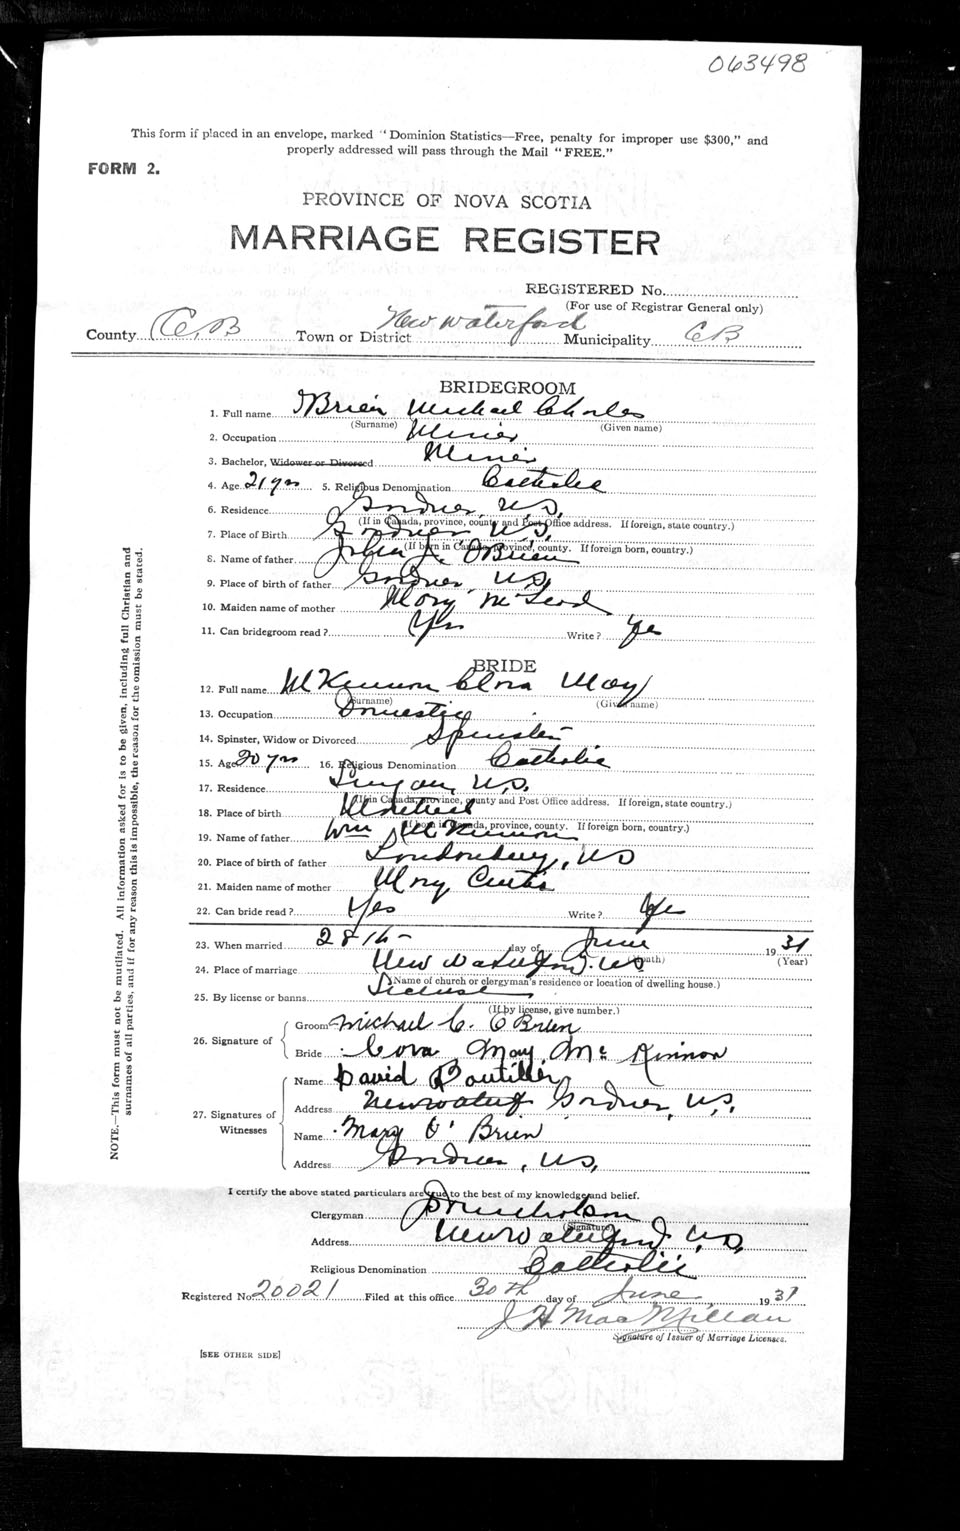 063498
This form if placed in an envelope, marked "Dominion Statistics—Free, penalty for improper use $300," and
properly addressed will pass through the Mail "FREE."
FORM 2.
PROVINCE OF NOVA SCOTIA
MARRIAGE REGISTER
REGISTERED No.
(For use of Registrar General only)
County C.B Town or District New Waterford Municipality CB
BRIDEGROOM
1. Full name O'Brien Michael Charles
(Surname) (Given name)
2. Occupation Miner
3. Bachelor, Widower or Divorced Miner
4. Age 21 yrs 5. Religious Denomination Catholic
6. Residence Gardner, N.S.
(If in Canada, province, county and Post Office address. If foreign, state country.)
7. Place of Birth Gardner N.S.
(If born in Canada, province, county. If foreign born, country.)
8. Name of father John J. O'Brien
9. Place of birth of father Gardner, N.S.
10. Maiden name of mother Mary McLeod
11. Can bridegroom read? Yes Write? Yes
BRIDE
12. Full name McKinnon Cora May
(Surname) (Given name)
13. Occupation Domestic
14. Spinster, Widow or Divorced Spinster
15. Age 20 yrs 16. Religious Denomination Catholic
17. Residence Lingan, N.S.
(If in Canada, province, county and Post Office address. If foreign, state country.)
18. Place of birth
(If born in Canada, province, county. If foreign born, country.)
19. Name of father Wm McKinnon
20. Place of birth of father Londonderry, NS
21. Maiden name of mother Mary Curtis
22. Can bride read? Yes Write? Yes
23. When married 28th day of June 1931
(Month) (Year)
24. Place of marriage New Waterford. NS
(Name of church or clergyman's residence or location of dwelling house.)
25. By license or banns License
(If by license, give number.)
26. Signature of
Groom Michael C. O'Brien
Bride Cora May McKinnon
27. Signatures of Witnesses
Name David Boutilier
Address Gardner, N.S.
Name Mary O'Brien
Address Gardner, N.S.
I certify the above stated particulars are true to the best of my knowledge and belief.
Clergyman
(Signature)
Address New Waterford, N.S.
Religious Denomination Catholic
Registered No 20021 Filed at this office 30th day of June 1931
J H MacMillan
Signature of Issuer of Marriage Licenses.
[SEE OTHER SIDE]
NOTE.—This form must not be mutilated. All information asked for is to be given, including full Christian and
surnames of all parties, and if for any reason this is impossible, the reason for the omission must be stated.